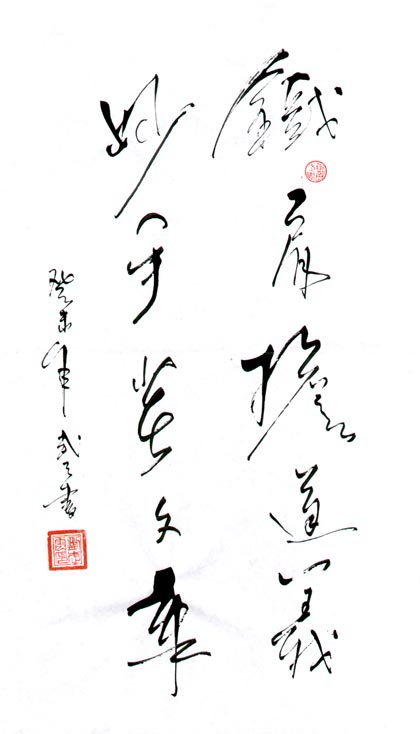 鐵肩擔道義
妙手著文章
癸未年武之書